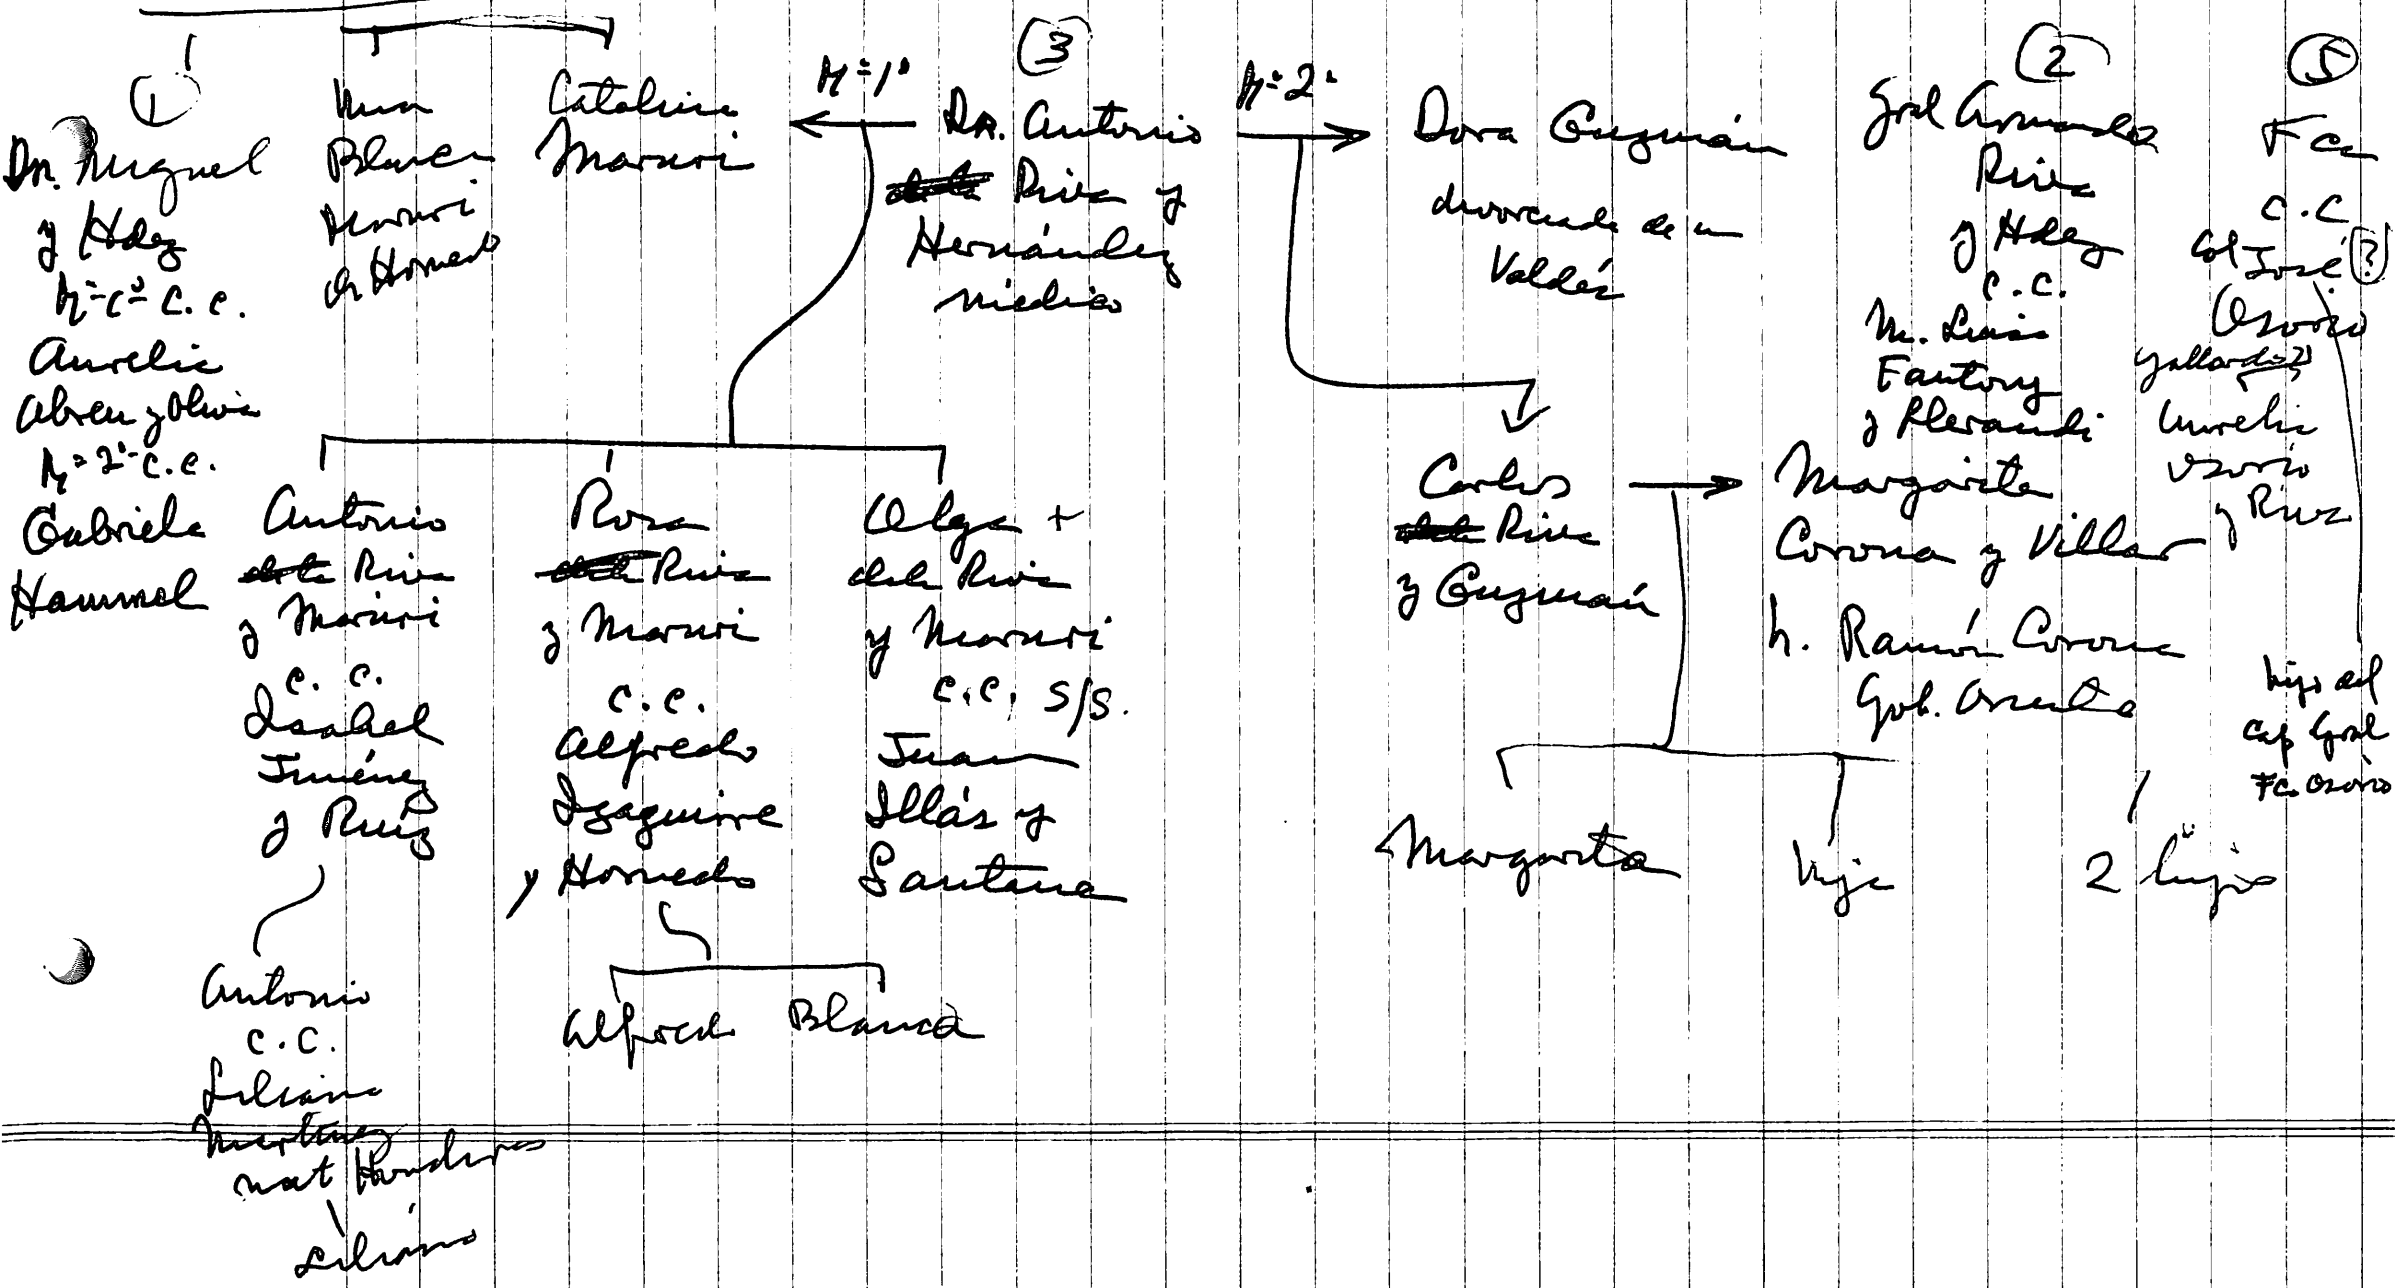 ①
Dr. Miguel
y Hdez
Mº 1º C.C.
Aurelia
Abreu y Oliva
Mº 2º C.C.
Gabriela
Hammel
Blanca
Maruri
de Hornedo
Catalina
Maruri
Mº 1º
③
Dr. Antonio
Riva y
Hernández
médico
Mº 2º
Dora Guzmán
divorciada de un
Valdés
②
Gral Armando
Riva
y Hdez
C.C.
M. Luisa
Fantony
y Llerandi
⑤
Fca
C.C
Col José (?)
Osorio
Gallardo?
Aurelia
Osorio
y Riva
hijo del
Cap Gral
Fco. Osorio
Antonio
Riva
y Maruri
C. C.
Isabel
Jiménez
y Ruiz
Rosa
Riva
y Maruri
C.C.
Alfredo
Izaguirre
y Hornedo
Olga +
de la Riva
y Maruri
C.C. S/S.
Juan
Illás y
Santana
Carlos
Riva
y Guzmán
Margarita
Corona y Villar
h. Ramón Corona
Gob. Oriente
Margarita
hija
2 hijos
Antonio
C.C.
Liliana
Martínez
nat Honduras
Liliana
Alfredo Blanca